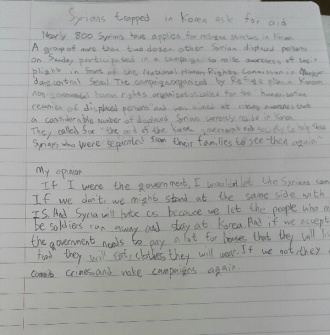 Syrians trapped in Korea ask for aid
Nearly 800 Syrians have applied for refugee status in Korea.
A group of more than two dozen other Syrian displaced persons
on Sunday participated in a campaign to raise awareness of their
plight in front of the National Human Rights Commission in
central Seoul. The campaign, organized by Refuge pNan, a Korean
non-governmental human rights organization called for the humanitarian
reunion of displaced persons and was aimed at raising awareness that
a considerable number of displaced Syrians currently reside in Korea.
They called for "the aid of the Korean government and society to help the
Syrians who were separated from their families to see them again"
My opinion
If I were the government, I wouldn't let the Syrians
If we don't we might stand at the same side with
IS. And Syria will hate us because we let the people who
be soldiers run away and stay at Korea. And if we accept
the government needs to pay a lot for houses that they will
food they will eat, clothes they will wear. If we not, they
commit crimes and make campaigns again.